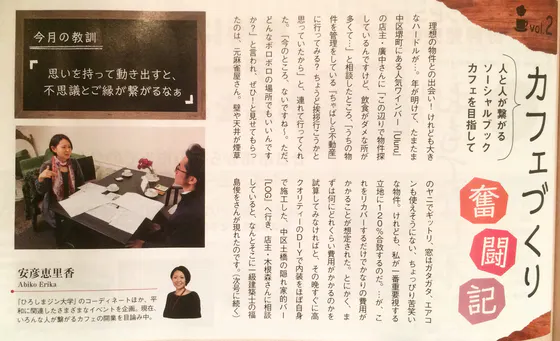 vol.2
カフェづくり
奮闘記
人と人が繋がる
ソーシャルブック
カフェを目指して
理想の物件との出会い！けれども大き
なハードルが…。年が明けて、たまたま
中区堺町にある人気ワインバー『Uluru』
の店主・廣中さんに「この辺りで物件探
しているんですけど、飲食がダメな所が
多くて…」と相談したところ、「うちの物
件を管理をしている『ちゃばしら不動産』
に行ってみる？ちょうど挨拶行こうかと
思っていたから」と、連れて行ってくれ
た。「今のところ、ないですね〜。ただ、
どんなボロボロの場所でもいいんです
か？」と言われ、ぜひ！と見せてもらっ
たのは、元麻雀屋さん。壁や天井が煙草
のヤニでギットリ、窓はガタガタ、エアコ
ンも使えそうにない、ちょっぴり苦笑い
な物件。けれども、私が一番重要視する
立地に120%合致するのだ。…が、こ
れをリカバーするだけでかなりの費用が
かかることが想定された。とにかく、ま
ずは何にどれくらい費用がかかるのかを
試算してみなければと、その晩すぐに高
クオリティーのDIYで内装をほぼ自身
で施工した、中区土橋の隠れ家的バー
『LOG』へ行き、店主・木根森さんに相談
していると、なんとそこに一級建築士の福
島俊をさんが現れたのです。（次号に続く）
今月の教訓
思いを持って動き出すと、
不思議とご縁が繋がるなぁ
安彦恵里香
Abiko Erika
「ひろしまジン大学」のコーディネートほか、平
和に関連したさまざまなイベントを企画。現在、
いろんな人が繋がるカフェの開業を目論み中。